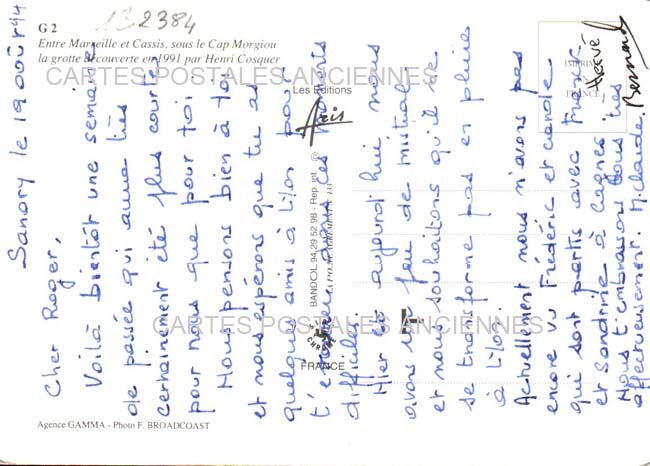 132384
G 2
Entre Marseille et Cassis, sous le Cap Morgiou
la grotte découverte en 1991 par Henri Cosquer
CARTES POSTALES ANCIENNES
Les Editions
Aris
BANDOL 94 29 52 98 - Rep. int. ©
FRANCE
CARTES POSTALES ANCIENNES
Agence GAMMA - Photo F. BROADCOAST
IMPRIMÉ
EN
FRANCE
Sanary le 19 août 94
Cher Roger,
Voilà bientôt une semaine
de passée qui aura très
certainement été plus courte
pour nous que pour toi.
Nous pensons bien à toi
et nous espérons que tu as
quelques amis à l'iloz pour
t' dans ces moments
difficiles.
Hier et aujourd'hui, nous
avons un peu de mistral
et nous souhaitons qu'il ne
se transforme pas en pluie
à l'iloz.
Actuellement nous n'avons pas
encore vu Frédéric et Carole
qui sont partis avec Franck
et Sandrine à Cagnes
Nous t'embrassons tous très
affectueusement. M. Claude.
Hervé
Bernard